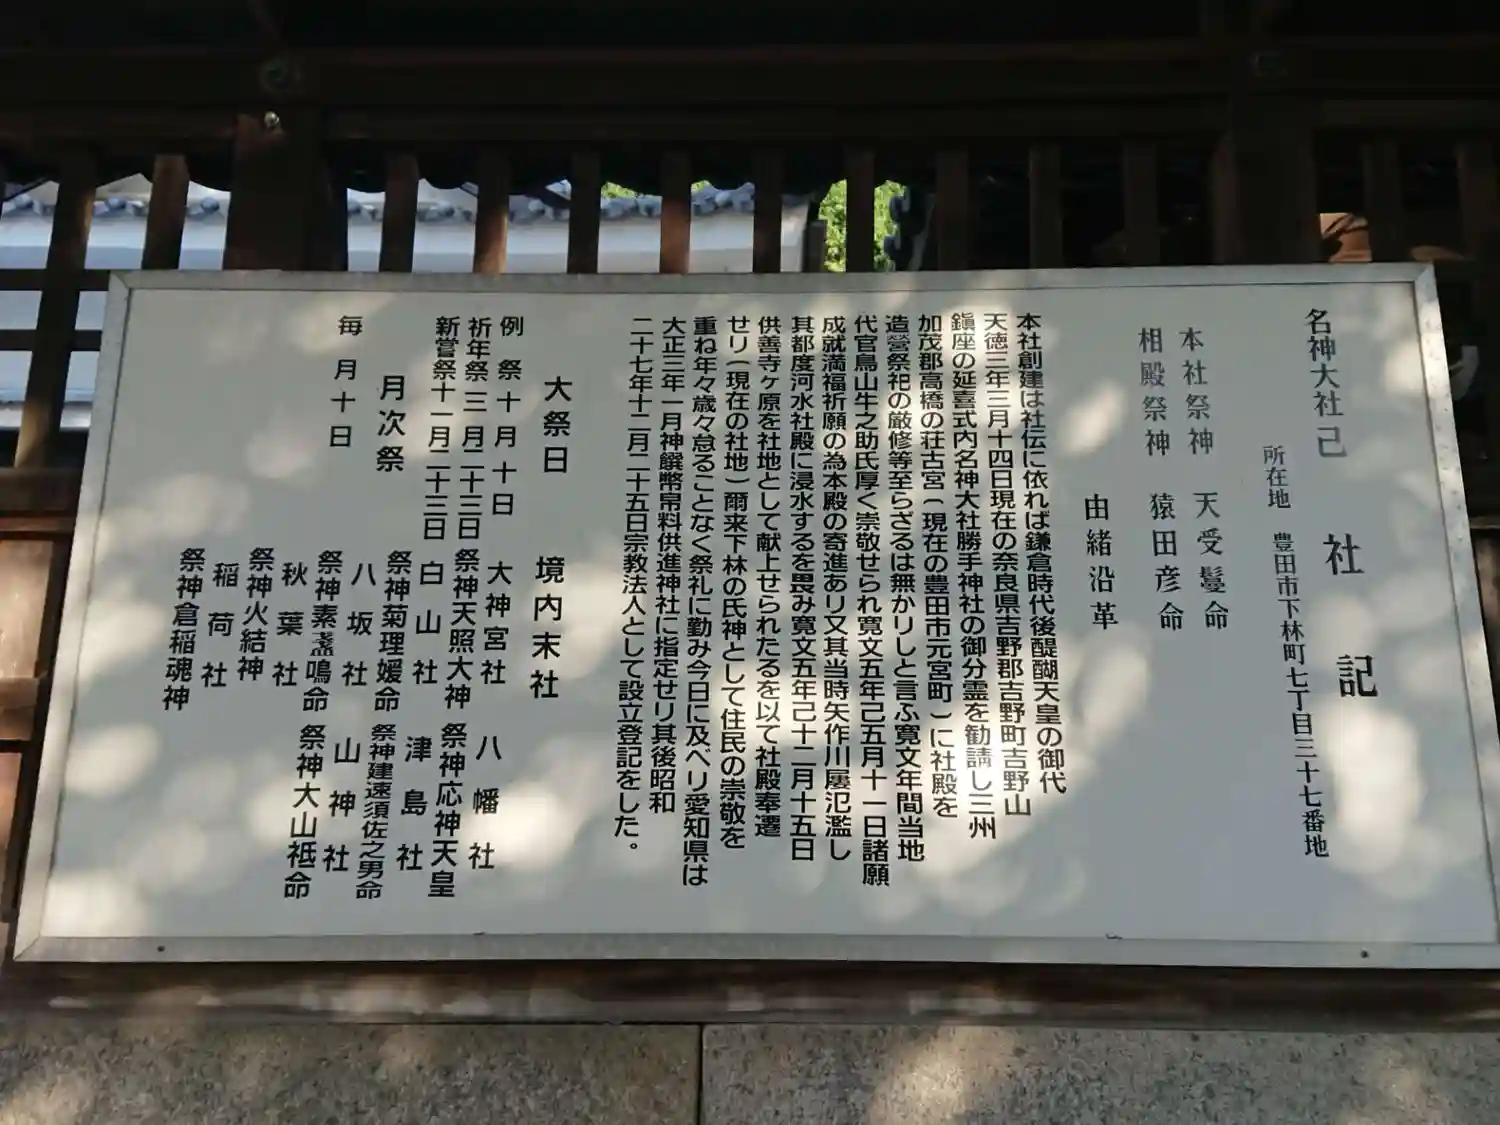 名神大社己 社 記
所在地 豊田市下林町七丁目三十七番地
本社祭神 天受鬘命
相殿祭神 猿田彦命
由緒沿革
本社創建は社伝に依れば鎌倉時代後醍醐天皇の御代
天徳三年三月十四日現在の奈良県吉野郡吉野町吉野山
鎭座の延喜式内名神大社勝手神社の御分霊を勧請し三州
加茂郡高橋の荘古宮(現在の豊田市元宮町)に社殿を
造営祭祀の厳修等至らざるは無かりしと言ふ寛文年間当地
代官鳥山牛之助氏厚く崇敬せられ寛文五年己五月十一日諸願
成就満福祈願の為本殿の寄進あり又其当時矢作川屡氾濫し
其都度河水社殿に浸水するを畏み寛文五年己十二月十五日
供善寺ヶ原を社地として献上せられたるを以て社殿奉遷
せり(現在の社地)爾来下林の氏神として住民の崇敬を
重ね年々歳々怠ることなく祭礼に勤み今日に及べり愛知県は
大正三年一月神饌幣帛料供進神社に指定せり其後昭和
二十七年十二月二十五日宗教法人として設立登記をした。
大祭日
例祭 十月十日
祈年祭 三月二十三日
新嘗祭十一月二十三日
月次祭
毎月十日
境内末社
大神宮社
祭神天照大神
白山社
祭神菊理媛命
八坂社
祭神素盞鳴命
秋葉社
祭神火結神
稲荷社
祭神倉稲魂神
八幡社
祭神応神天皇
津島社
祭神建速須佐之男命
山神社
祭神大山祗命